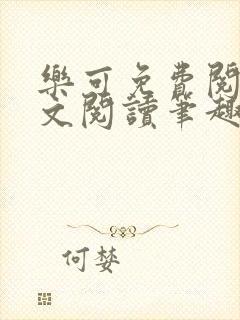 樂可免費閱
文閱讀筆趣
何婪